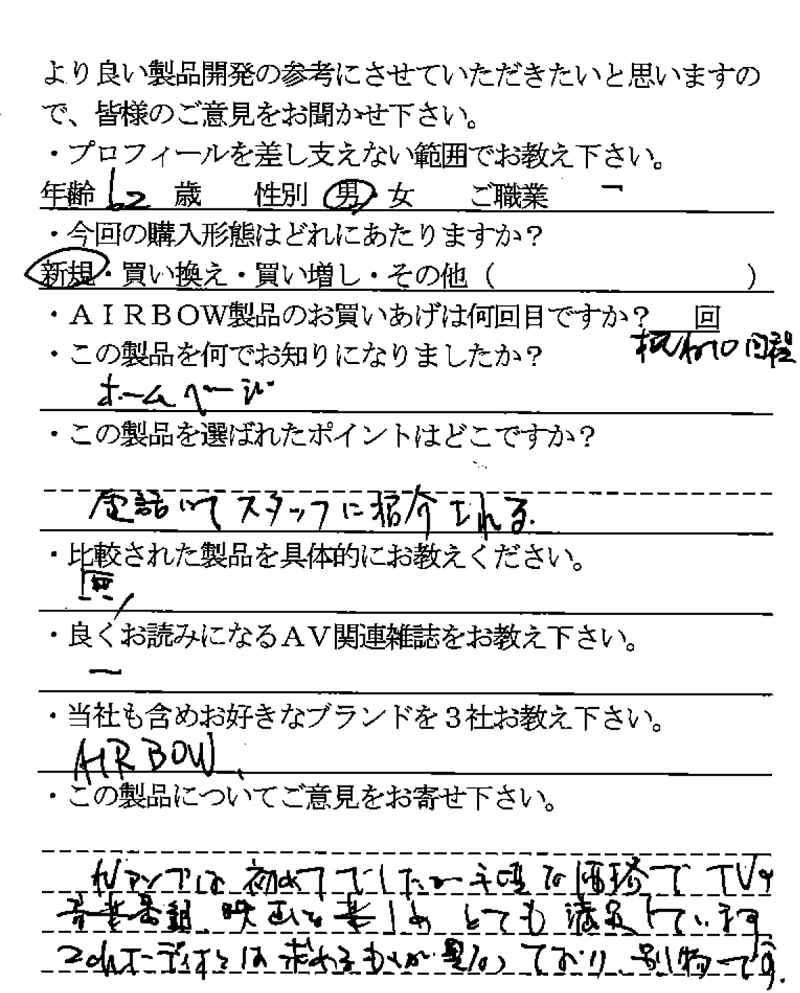 より良い製品開発の参考にさせていただきたいと思いますの
で、皆様のご意見をお聞かせ下さい。
・プロフィールを差し支えない範囲でお教え下さい。
年齢 62 歳 性別 男 女 ご職業 ー
・今回の購入形態はどれにあたりますか？
新規・買い換え・買い増し・その他（ ）
・ＡＩＲＢＯＷ製品のお買いあげは何回目ですか？ 回
概ね10回程
・この製品を何でお知りになりましたか？
ホームページ
・この製品を選ばれたポイントはどこですか？
電話にてスタッフに紹介される.
・比較された製品を具体的にお教えください。
・良くお読みになるＡＶ関連雑誌をお教え下さい。
ー
・当社も含めお好きなブランドを３社お教え下さい。
AIRBOW、
・この製品についてご意見をお寄せ下さい。
AVアンプは初めてでしたが手頃な価格でTVの
音楽番組、映画も楽しめとても満足しています
2chオーディオとは求めるものが異なっており、別物です。